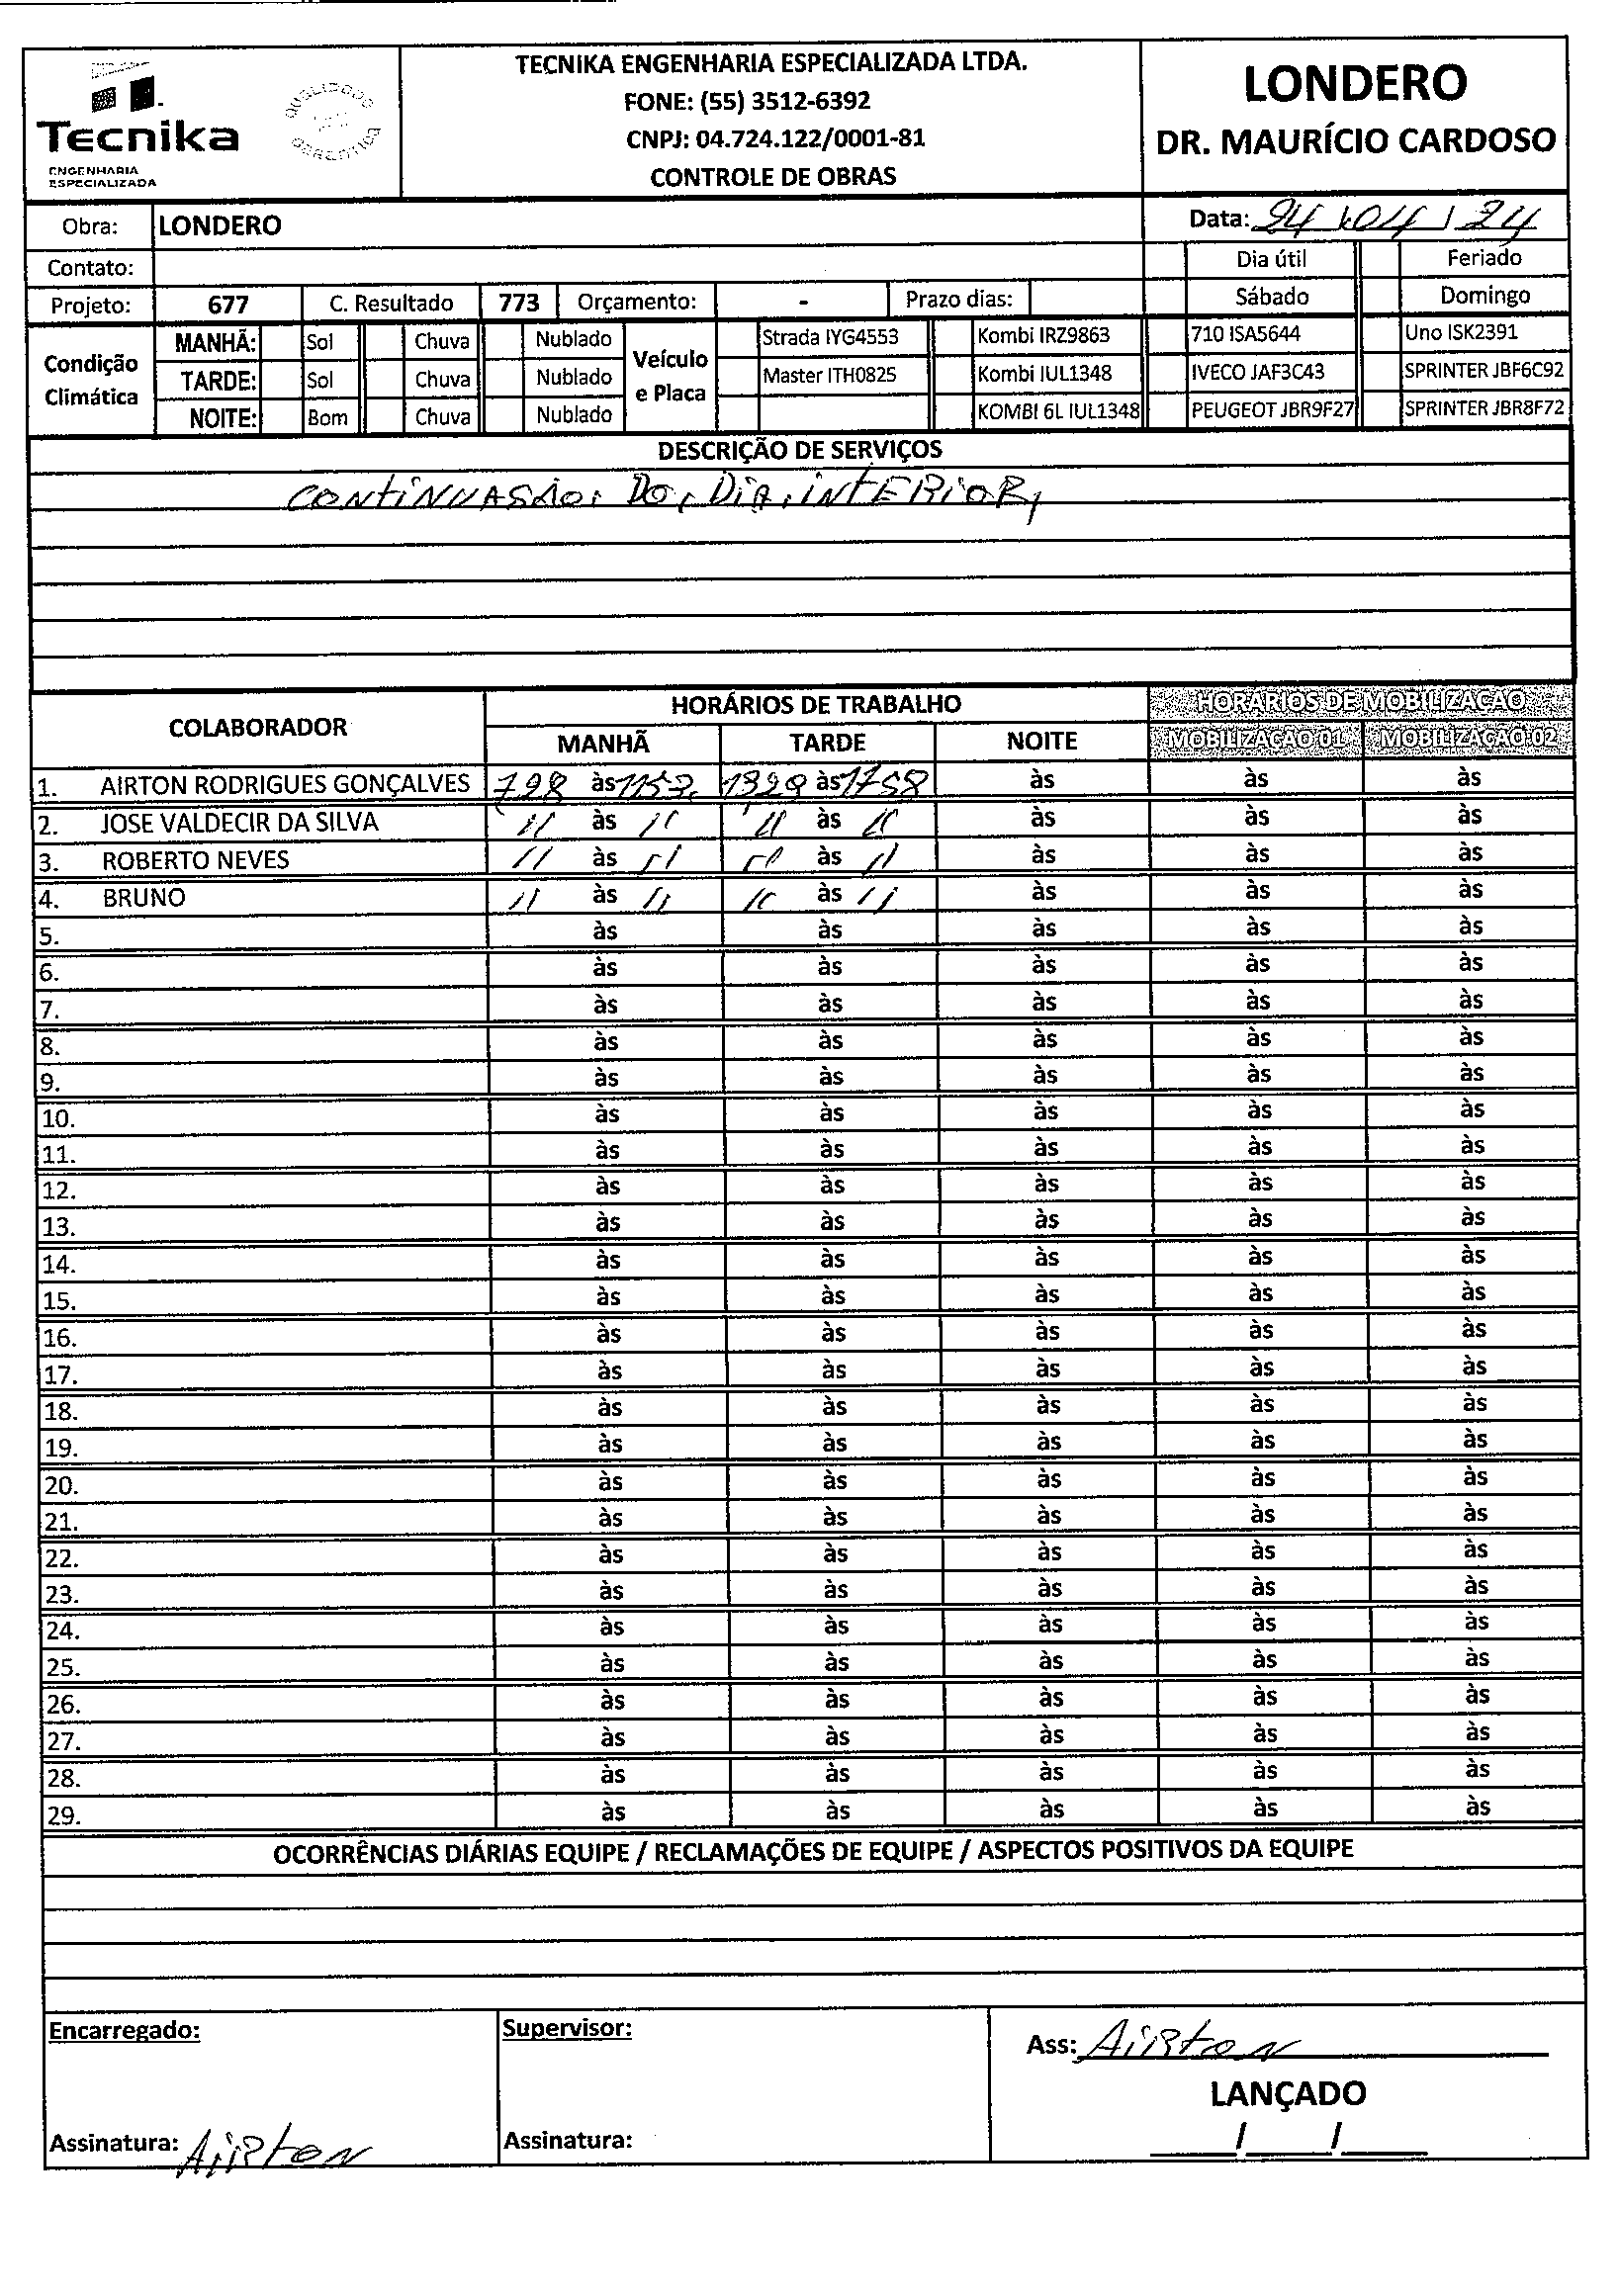 TECNIKA ENGENHARIA ESPECIALIZADA LTDA.
FONE: (55) 3512-6392
CNPJ: 04.724.122/0001-81
CONTROLE DE OBRAS
Tecnika
ENGENHARIA
ESPECIALIZADA
QUALIDADE
LONDERO
DR. MAURÍCIO CARDOSO
Obra: LONDERO
Data: 24 / 04 / 24
Contato:
Dia útil Feriado
Projeto: 677 C. Resultado 773 Orçamento: - Prazo dias: Sábado Domingo
Condição Climática
MANHÃ: Sol Chuva Nublado
TARDE: Sol Chuva Nublado
NOITE: Bom Chuva Nublado
Veículo e Placa
Strada IYG4553 Kombi IRZ9863 710 ISA5644 Uno ISK2391
Master ITH0825 Kombi IUL1348 IVECO JAF3C43 SPRINTER JBF6C92
KOMBI 6L IUL1348 PEUGEOT JBR9F27 SPRINTER JBR8F72
DESCRIÇÃO DE SERVIÇOS
CONTINUASÃO, DO, DIA, INTERIOR,
COLABORADOR HORÁRIOS DE TRABALHO HORÁRIOS DE MOBILIZAÇÃO
MANHÃ TARDE NOITE MOBILIZAÇÃO 01 MOBILIZAÇÃO 02
1. AIRTON RODRIGUES GONÇALVES 728 às 1157 1329 às 1758 às às às
2. JOSE VALDECIR DA SILVA 11 às 11 11 às 11 às às às
3. ROBERTO NEVES 11 às 11 11 às 11 às às às
4. BRUNO 11 às 11 11 às 11 às às às
5. às às às às às
6. às às às às às
7. às às às às às
8. às às às às às
9. às às às às às
10. às às às às às
11. às às às às às
12. às às às às às
13. às às às às às
14. às às às às às
15. às às às às às
16. às às às às às
17. às às às às às
18. às às às às às
19. às às às às às
20. às às às às às
21. às às às às às
22. às às às às às
23. às às às às às
24. às às às às às
25. às às às às às
26. às às às às às
27. às às às às às
28. às às às às às
29. às às às às às
OCORRÊNCIAS DIÁRIAS EQUIPE / RECLAMAÇÕES DE EQUIPE / ASPECTOS POSITIVOS DA EQUIPE
Encarregado:
Assinatura: Airton
Supervisor:
Assinatura:
Ass: Airton
LANÇADO
____/____/____